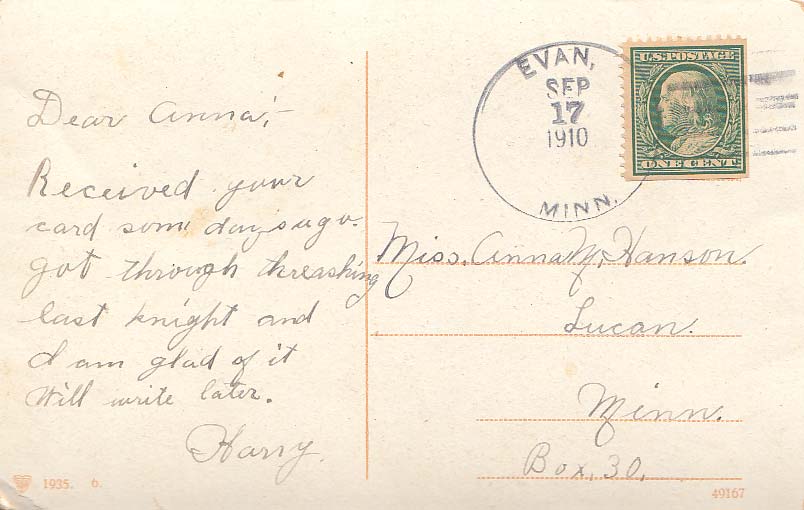 EVAN,
SEP
17
1910
MINN.
U.S. POSTAGE
ONE CENT
Dear Anna;-
Received your
card some days ago.
got through threashing
last knight and
I am glad of it
Will write later.
Harry.
Miss. Anna M. Hanson.
Lucan.
Minn.
Box. 30.
1935. 6.
49167